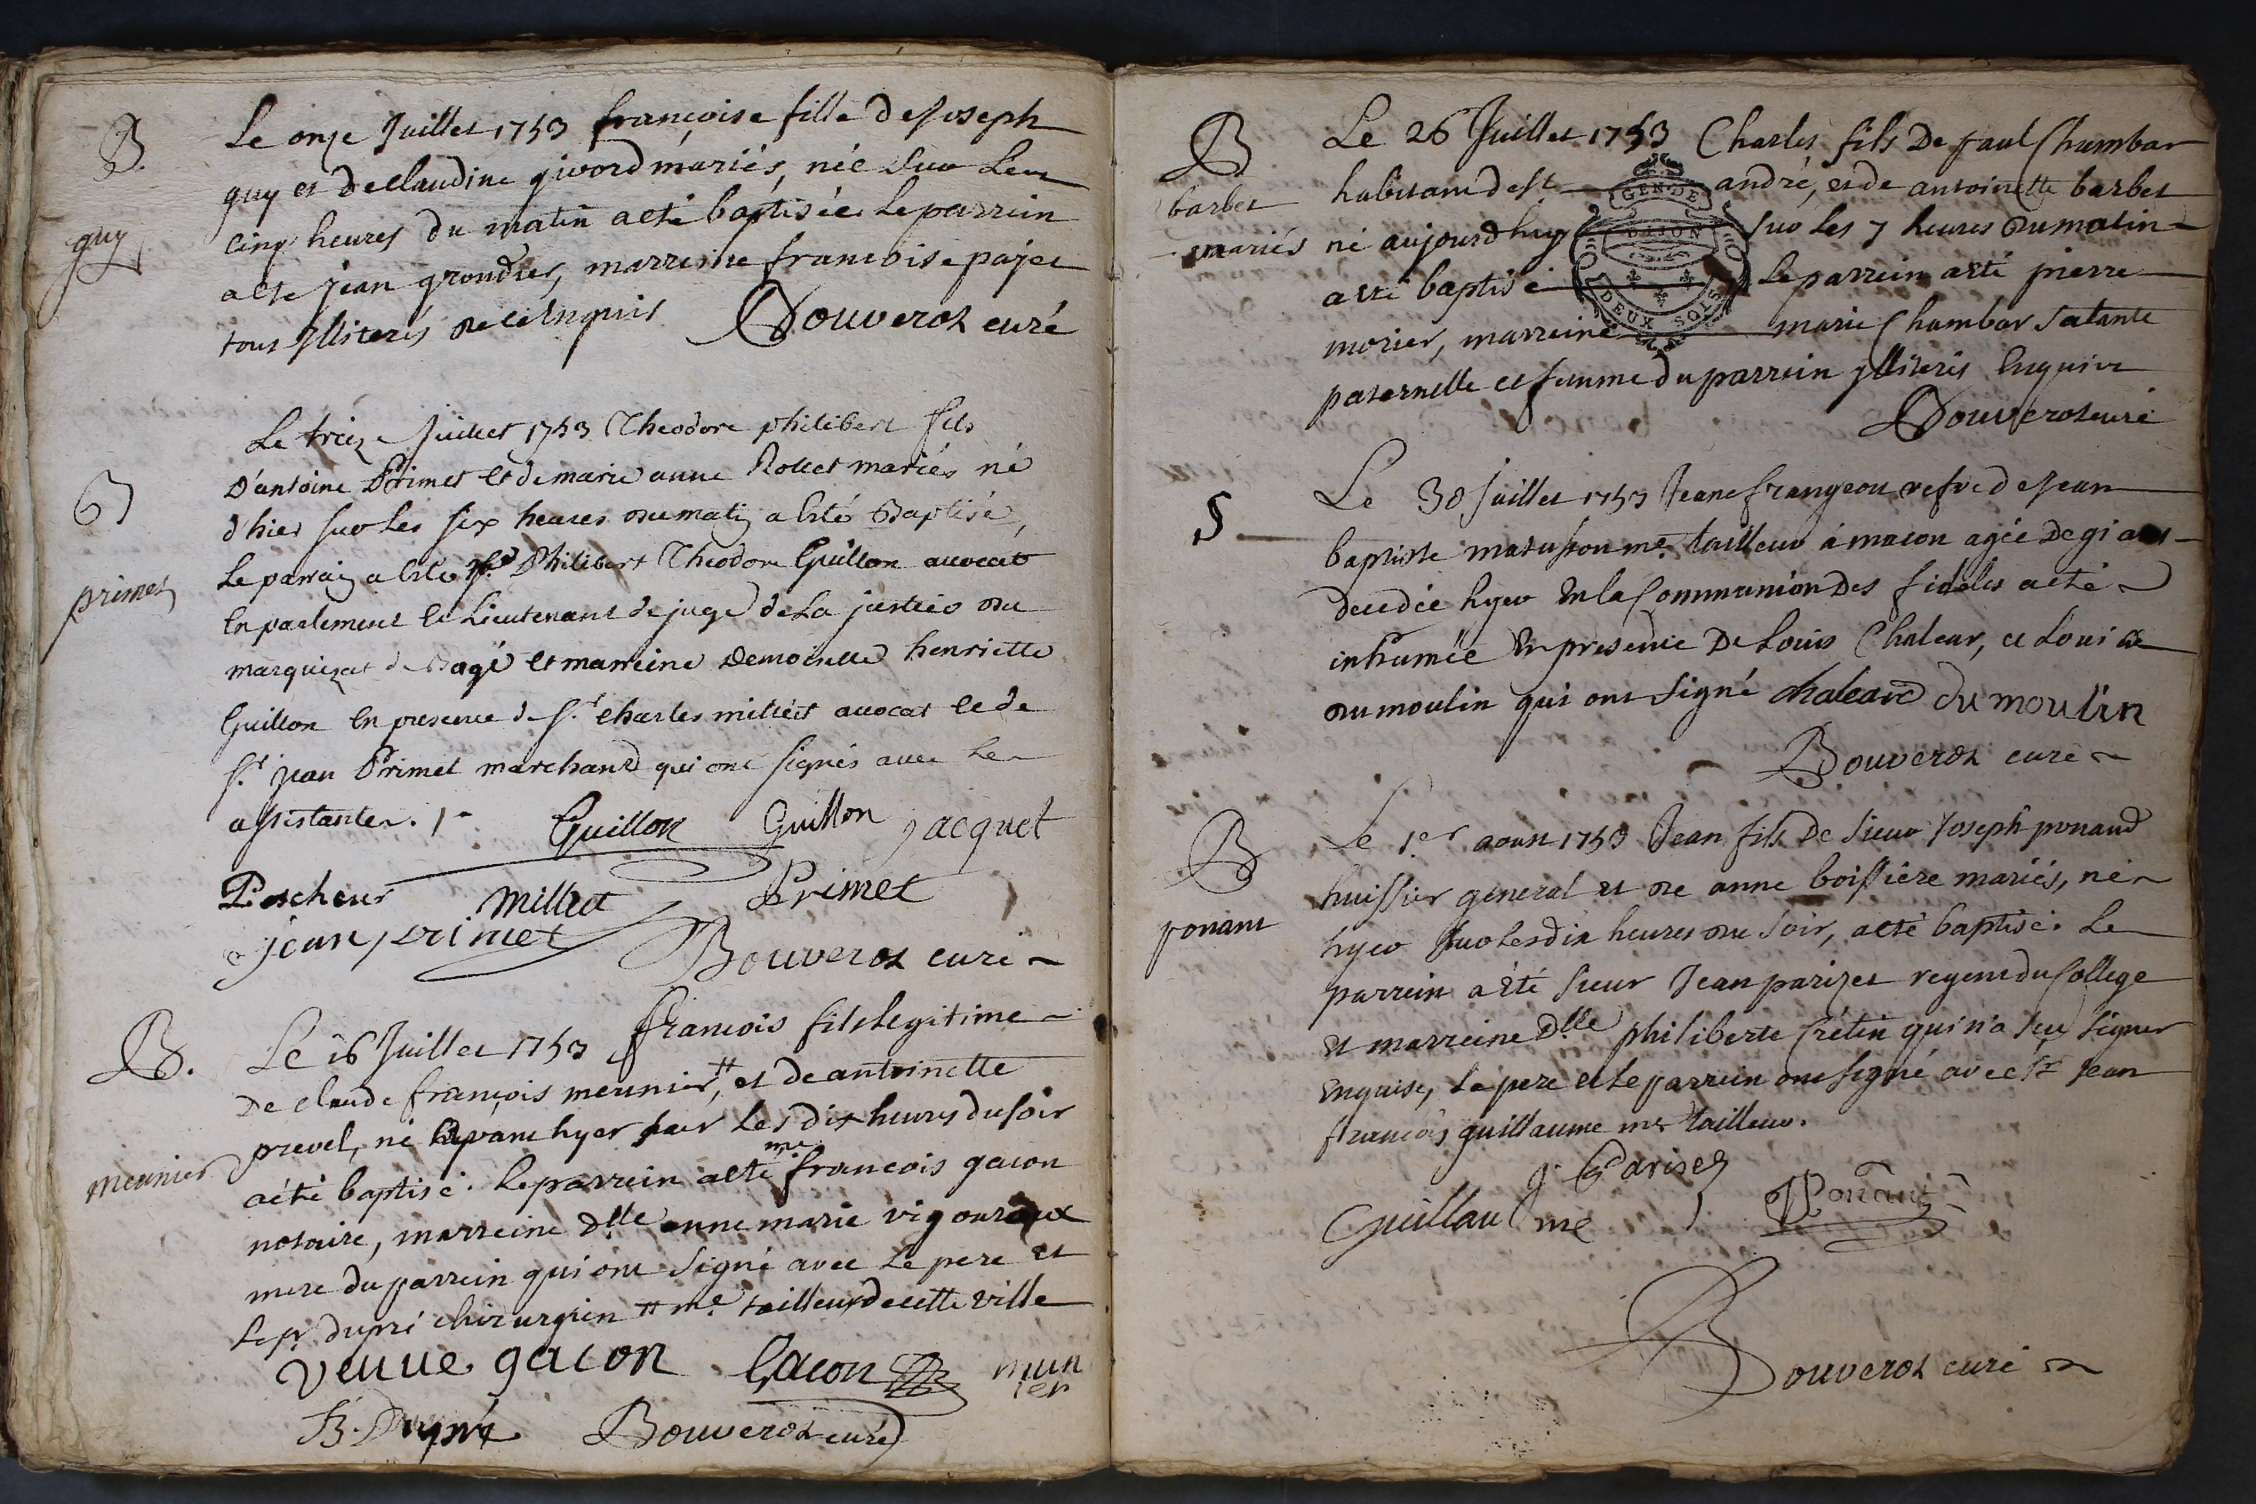 B.
guy
Le onze Juillet 1753 françoise fille de Joseph
guy et de claudine givord mariés, née sur les
cinq heures du matin a eté baptisée. Le parrein
a ete jean grondier, marreine francoise pajet
tous jlliterés de ce enquis Bouverot curé
B
primet
Le treize Juillet 1753 Theodore philibert fils
D'antoine Primet et de marie anne Rollet mariés né
d'hier sur les six heures du matin a été Baptisé,
Le parrain a été Philibert Theodore Guillon avocat
En parlement et Lieutenant de juge de La justice du
marquizat de Bagé et marreine Demoiselle henriette
Guillon En presence de Sr. charles milliet avocat et de
Sr. jean Primet marchand qui ont signés avec Les
assistantes.
Guillon Guillon jacquet
Pescheur Milliet Primet
jean primet Bouverot curé
B.
meunier
Le 16 Juillet 1753 François fils legitime
De claude françois meunier ⌗, et de antoinette
prevel, né avant hyer sur Les dix heures du soir
a été baptisé. Le parrein a eté me francois gacon
notaire, marreine Dlle anne marie vigoureux
mere du parrein qui ont signé avec Le pere et
Le sr. dupré chirurgien ⌗ me. tailleur de cette ville
veuve gacon Gacon mun
ier
B. Dupré Bouverot curé
B
barbet
mariés
Le 26 Juillet 1753 Charles fils De paul Chambar
habitant de St andré, et de antoinette barbet
né aujourdhuy sur Les 7 heures du matin
a eté baptisé Le parrein a eté pierre
morier, marreine marie Chambar sa tante
paternelle et femme du parrein jlliterés Enquis
Bouverot curé
GEN DE
DIJON
DEUX SOLS
S
Le 30 Juillet 1753 Jeane frangeou vefve de Jean
baptiste matusson me. tailleur à macon agée De 91 ans
decedée hyer En la Communion Des fideles a eté
inhumée En presence De Louis Chalear, et Louis
dumoulin qui ont signé chaleard du moulin
Bouverot curé
B
ponant
Le 1er aoust 1753 Jean fils De Sieur Joseph ponand
huissier general et de anne boissiere mariés, né
hyer sur Les dix heures du soir, a eté baptisé. Le
parrein a été Sieur Jean parizet regent du College
et marreine Dlle philiberte Crétin qui n'a sçu signer
Enquise, Le pere et Le parrein ont signé avec Sr Jean
francois guillaume me tailleur.
J Parizet
Guillaume Ponant
Bouverot curé